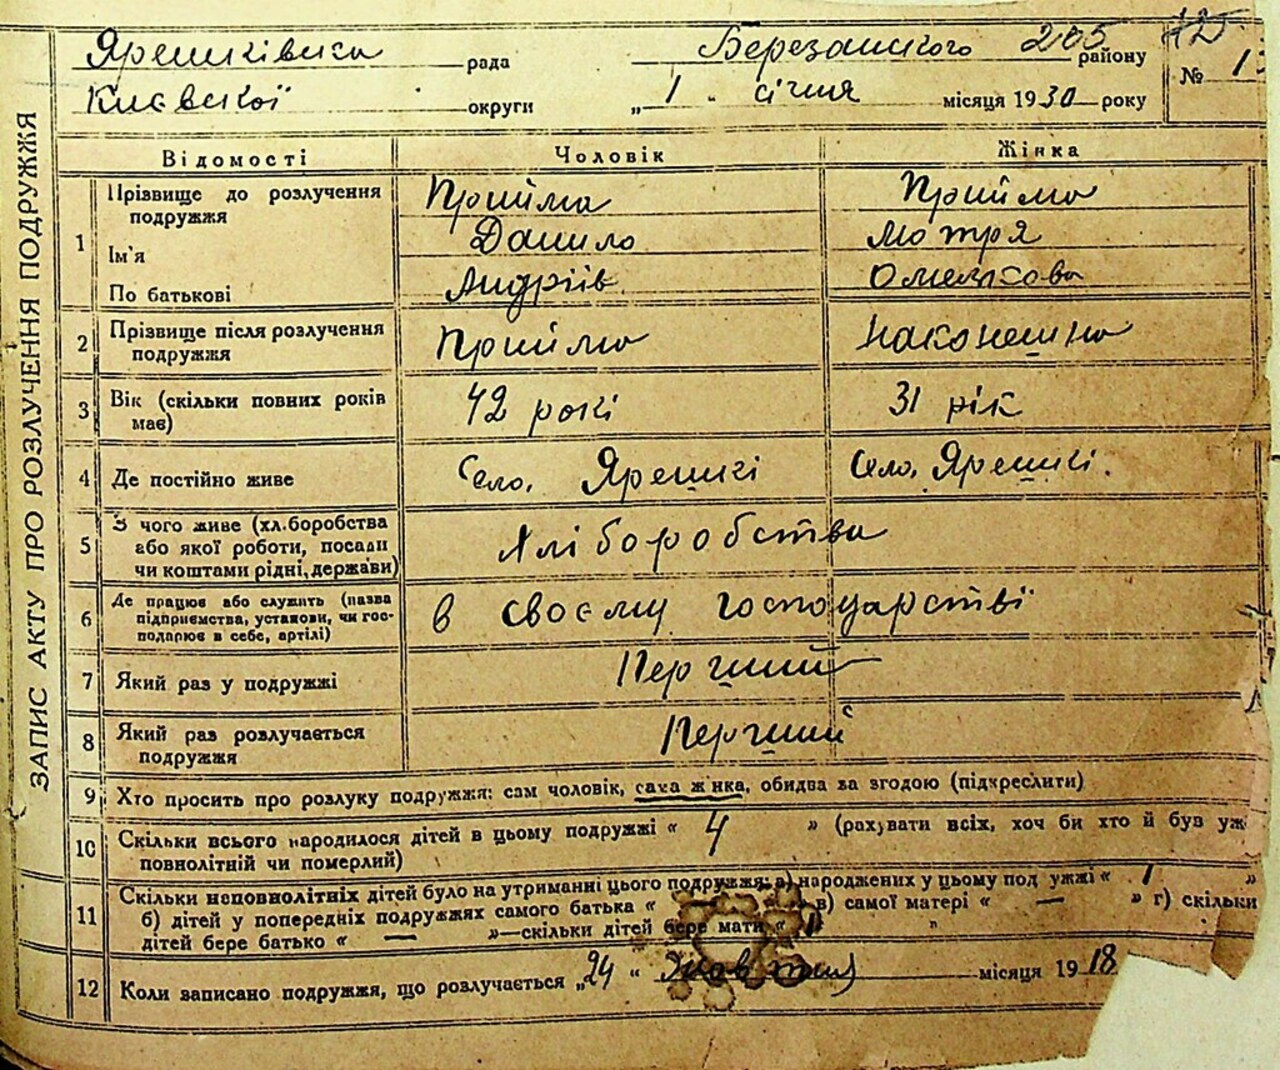 ЗАПИС АКТУ ПРО РОЗЛУЧЕННЯ ПОДРУЖЖЯ
Ярешківска рада Березанского 205 району № 1
Києвскої округи „ 1 „ січня місяця 1930 року
Відомості Чоловік Жінка
1 Прізвище до розлучення подружжя Прийма Прийма
Ім'я Данило Мотря
По батькові Андріїв Омелкова
2 Прізвище після розлучення подружжя Прийма Наконешна
3 Вік (скільки повних років має) 42 рокі 31 рік
4 Де постійно живе Село. Ярешкі Село. Ярешкі.
5 З чого живе (хліборобства або якої роботи, посади чи коштами рідні, держави) Хліборобства
6 Де працює або служить (назва підприємства, установи, чи господарює в себе, артілі) в своєму господарстві
7 Який раз у подружжі Перший
8 Який раз розлучається подружжя Перший
9 Хто просить про розлуку подружжя: сам чоловік, сама жінка, обидва за згодою (підкреслити)
10 Скільки всього народилося дітей в цьому подружжі « 4 » (рахувати всіх, хоч би хто й був уж
повнолітній чи померлий)
11 Скільки неповнолітніх дітей було на утриманні цього подружжя: а) народжених у цьому подружжі « 1 »
б) дітей у попередніх подружжях самого батька « — » в) самої матері « — » г) скільки
дітей бере батько « — »—скільки дітей бере мати « 1 "
12 Коли записано подружжя, що розлучається „24 “ Жовтня місяця 1918